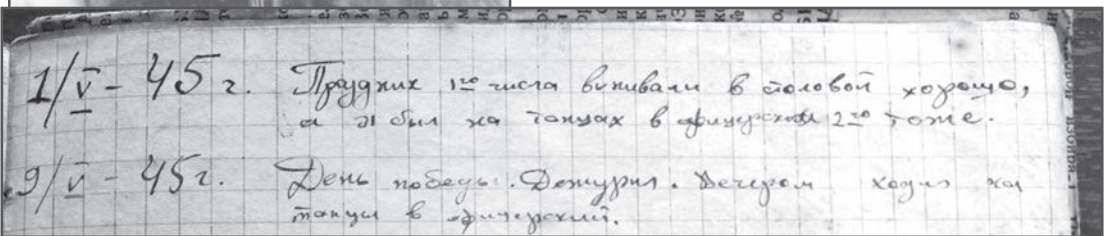 1/V - 45 г. Праздник 1го числа выпивали в столовой хорошо,
а я был на танцах в офицерском 2го тоже.
9/V - 45 г. День победы. Дежурил. Вечером ходил на
танцы в офицерский.